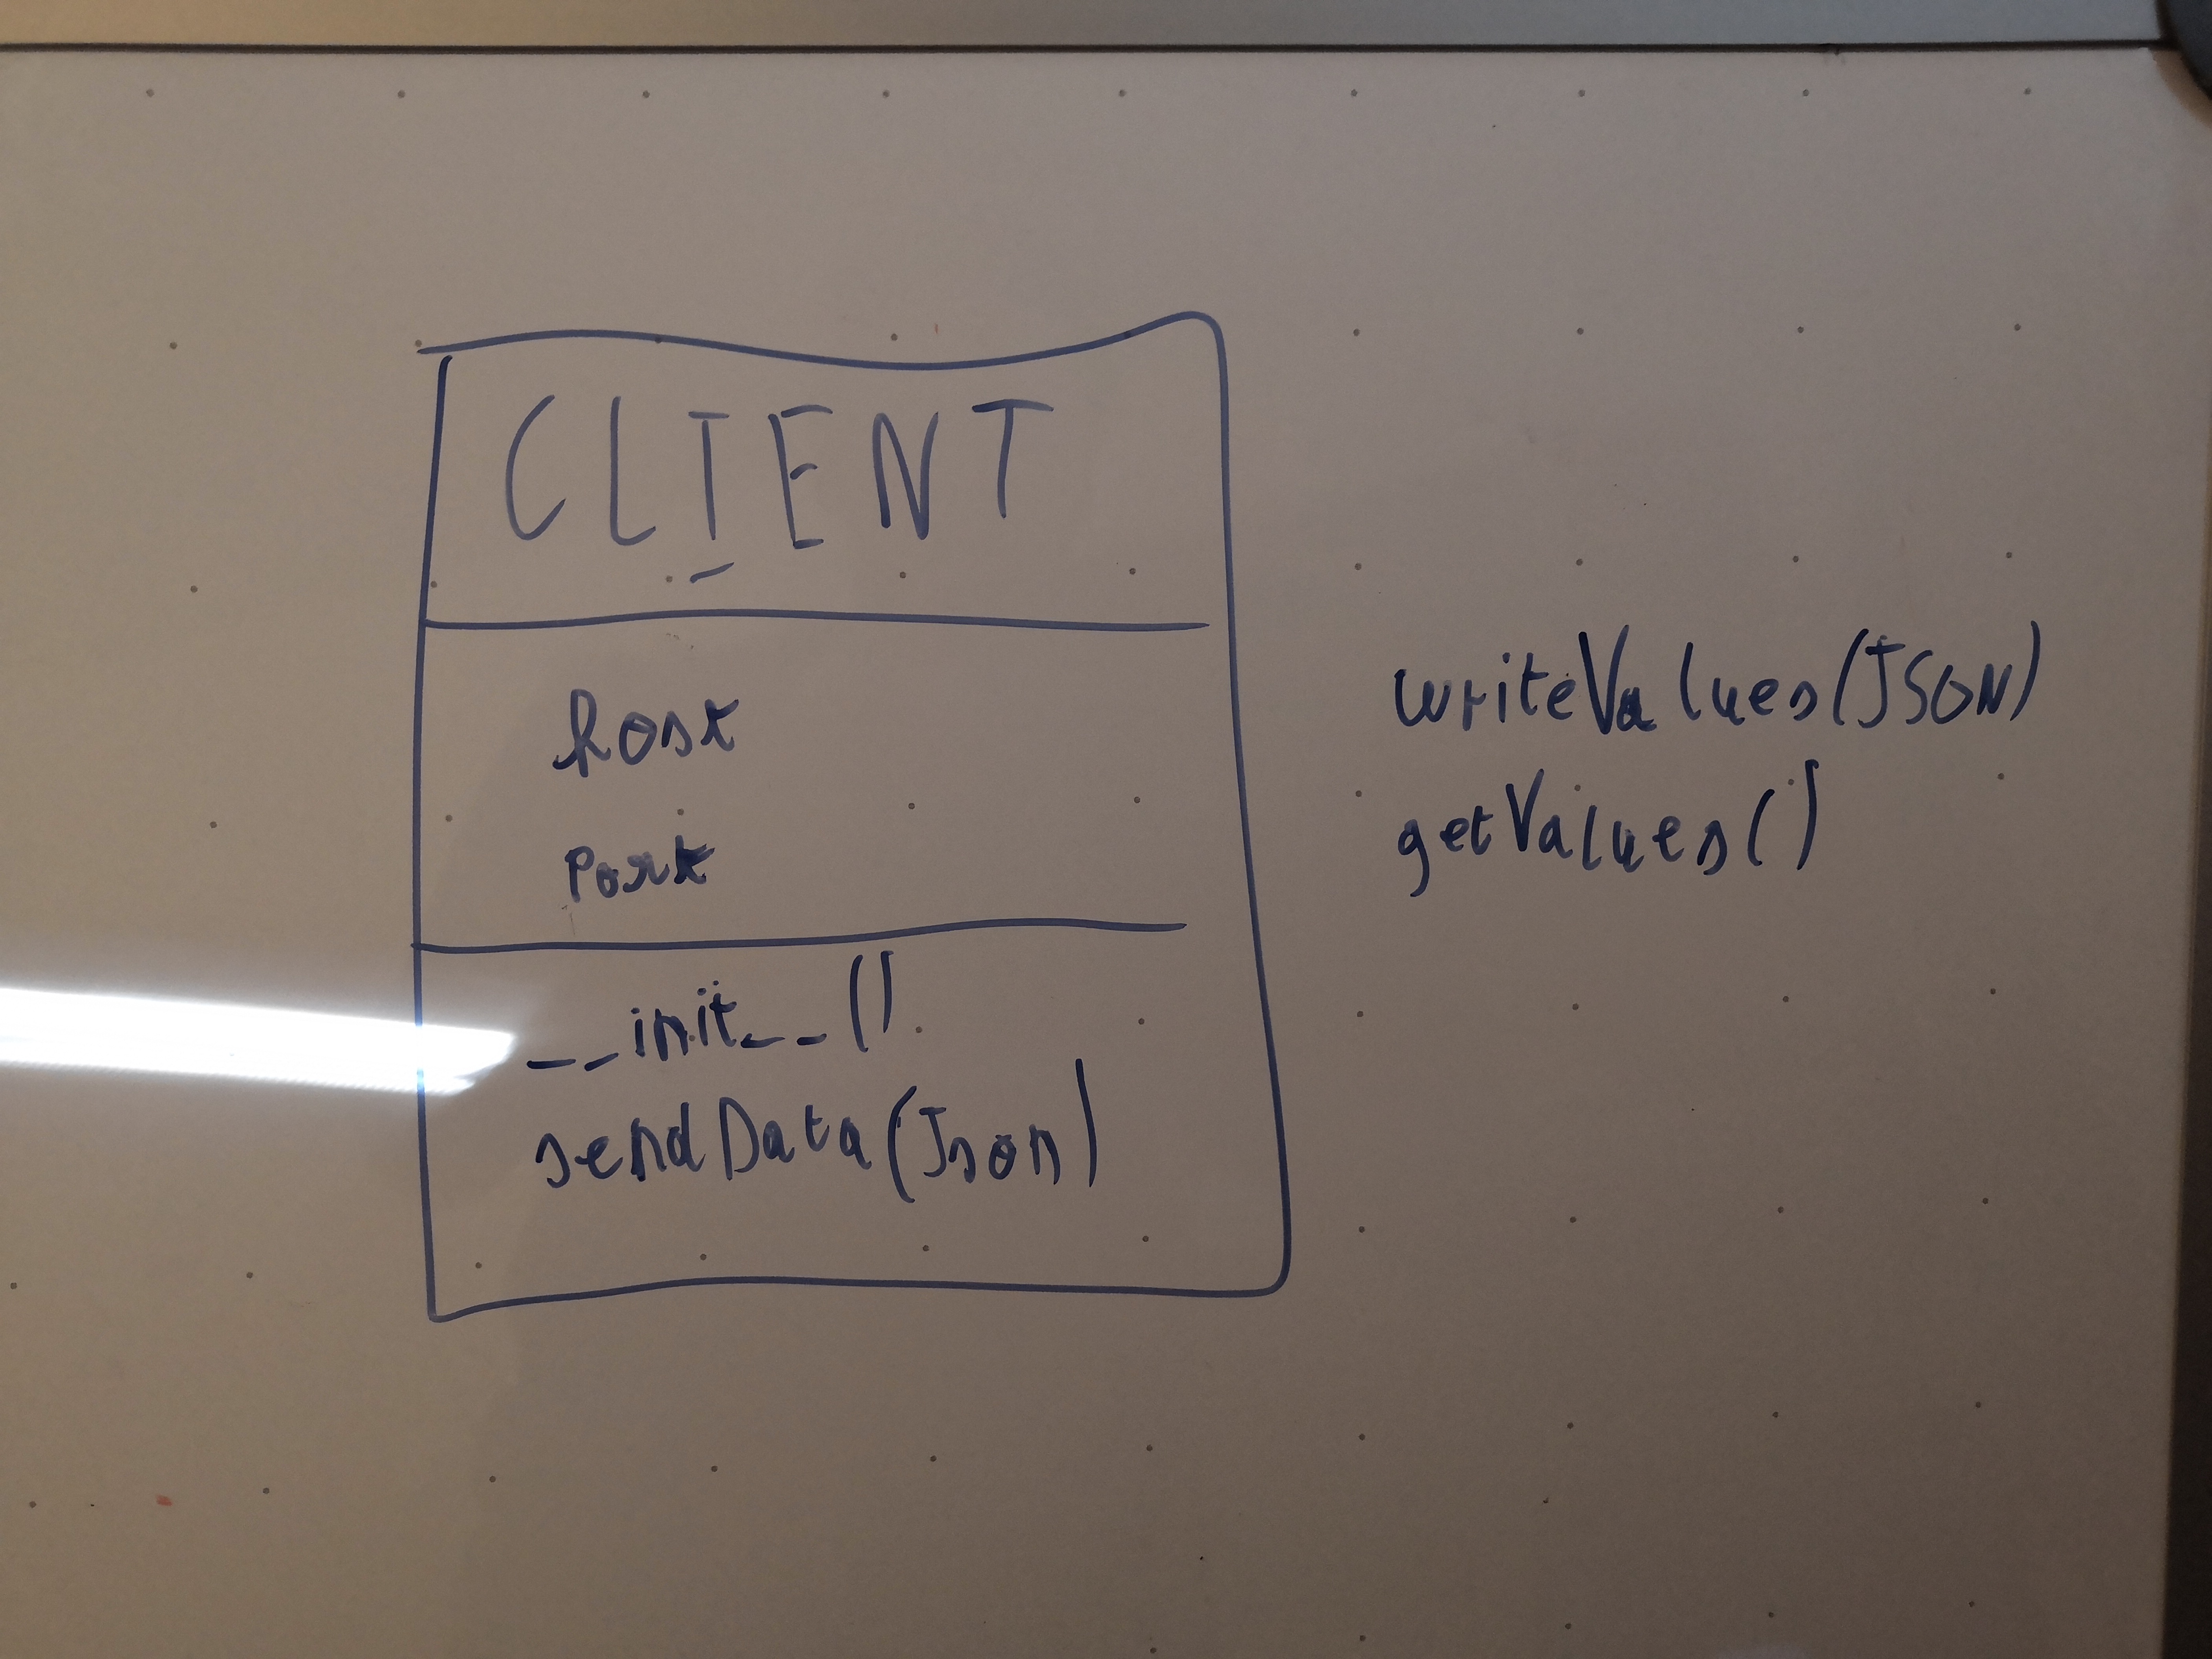 CLIENT
host
port
__init__()
sendData(Json)
writeValues(JSON)
getValues()